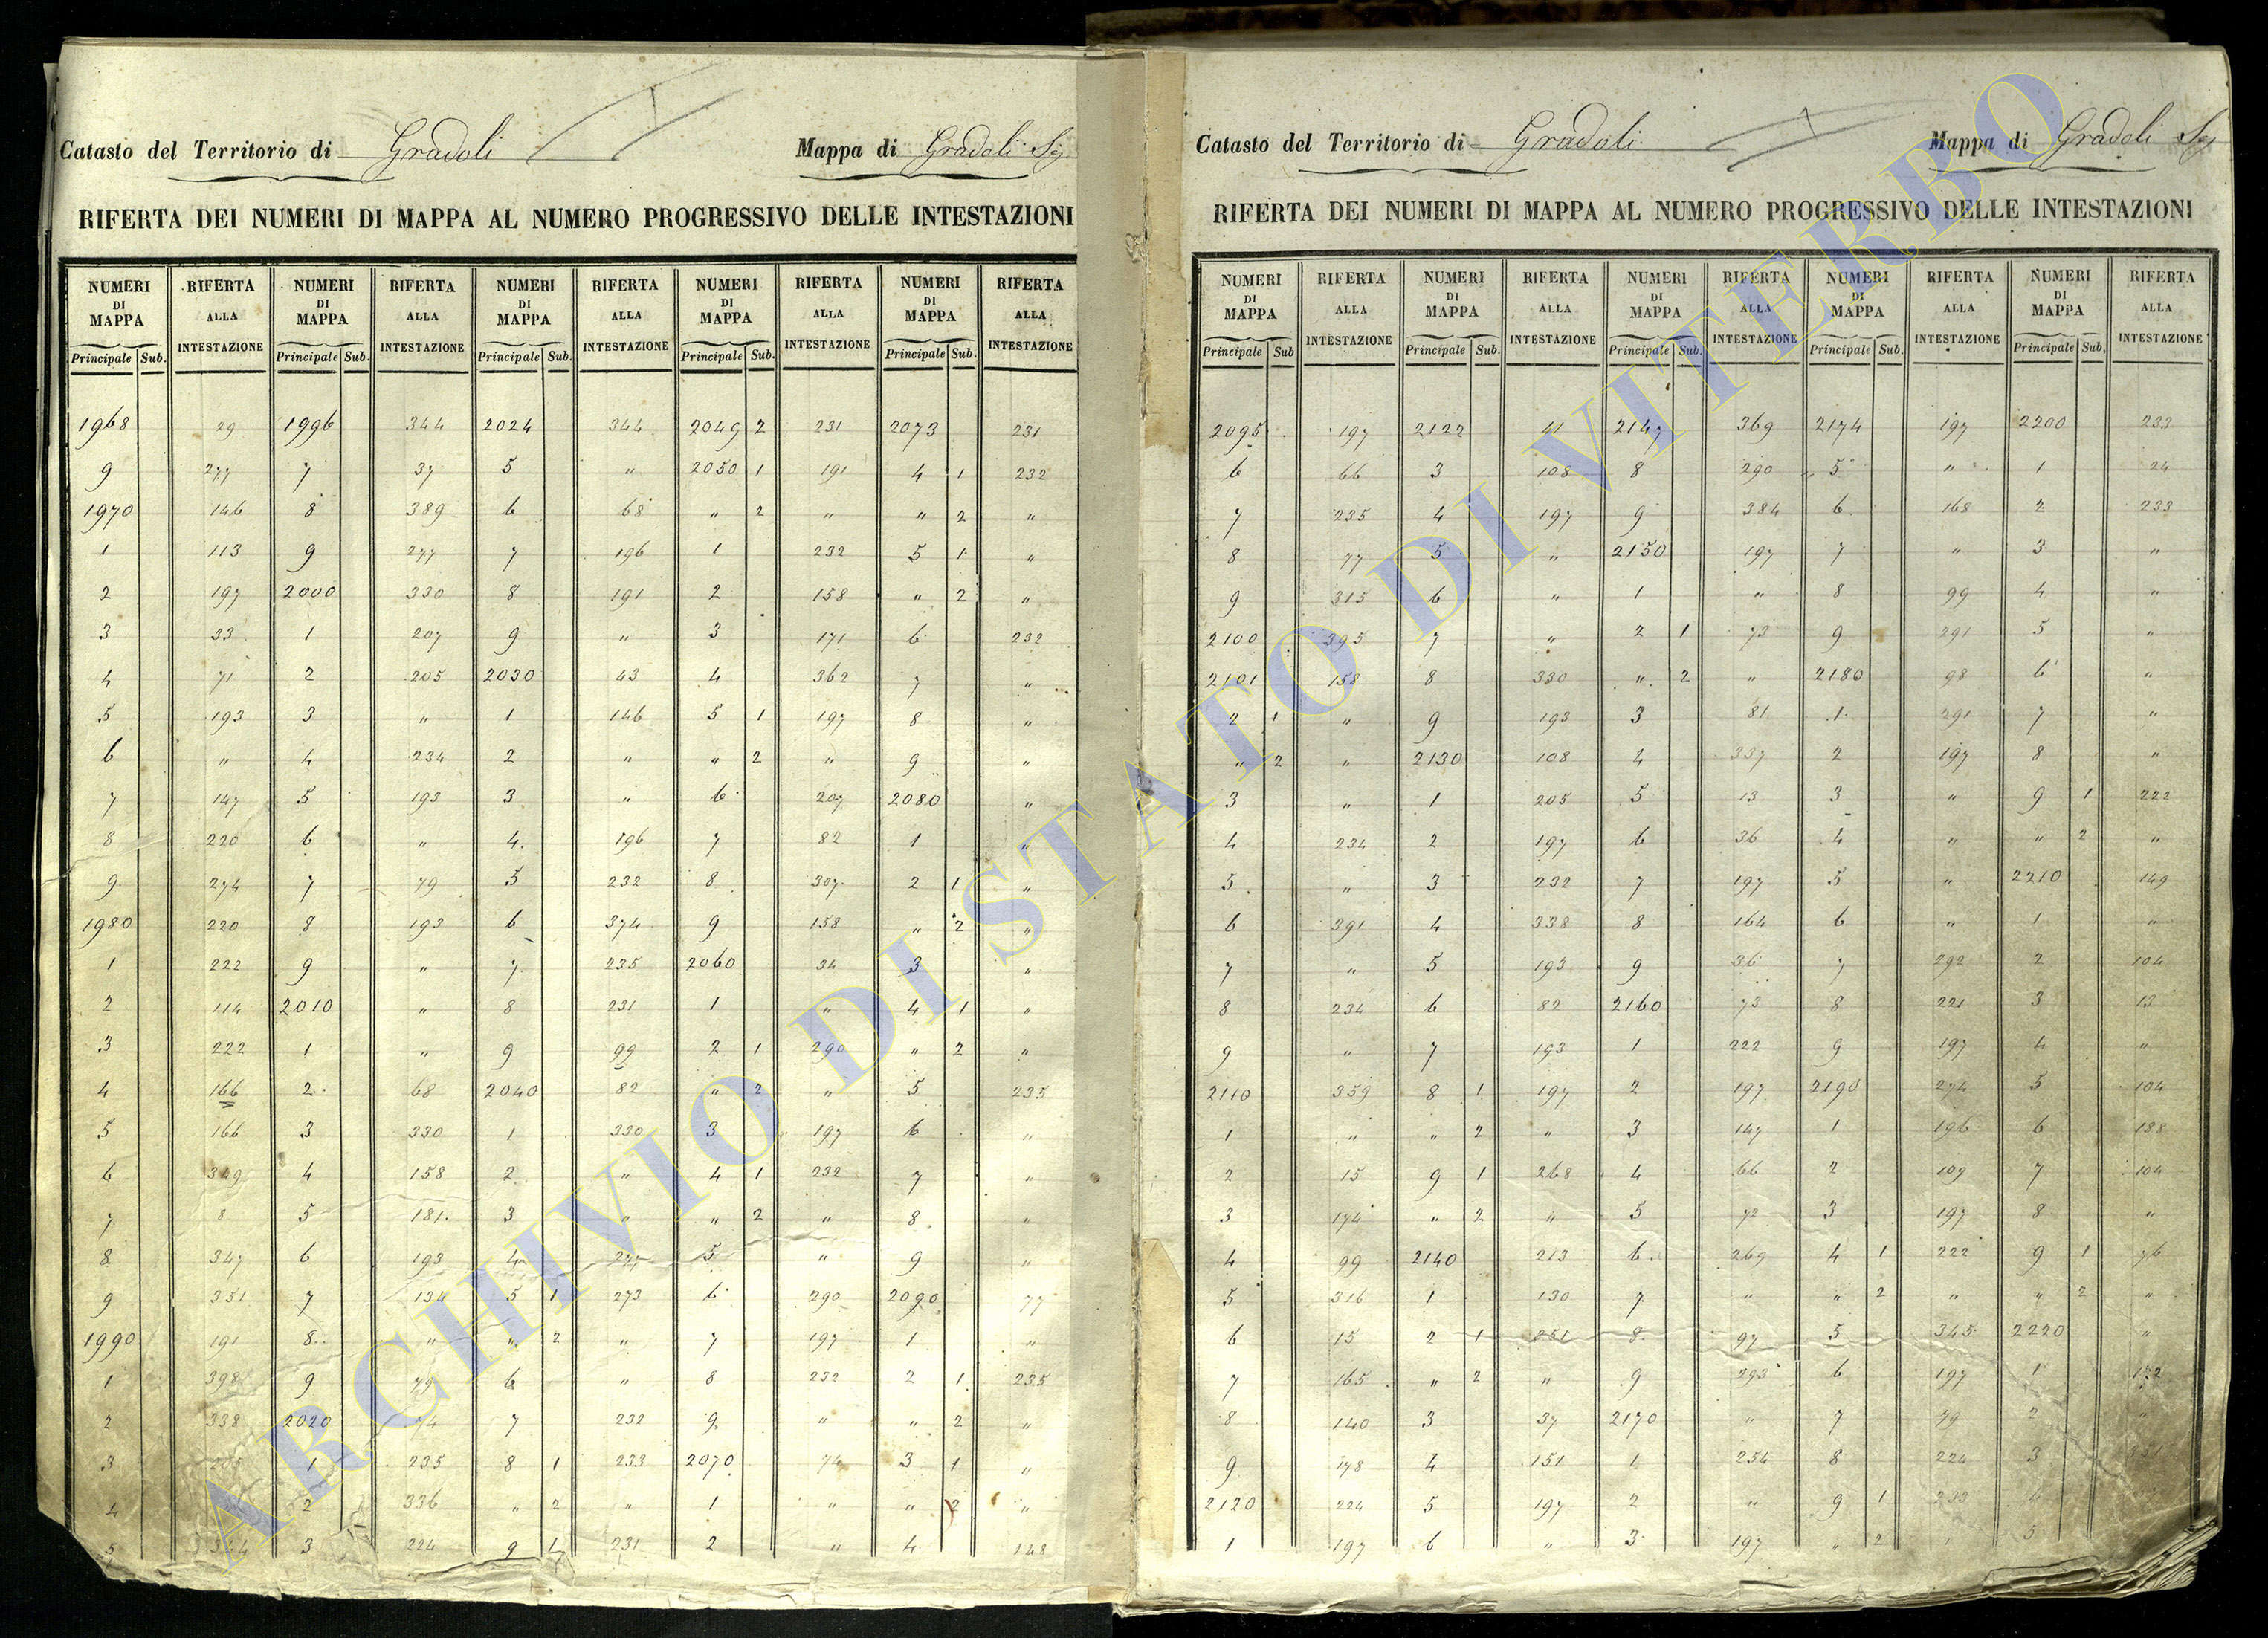 Catasto del Territorio di Gradoli Mappa di Gradoli
RIFERTA DEI NUMERI DI MAPPA AL NUMERO PROGRESSIVO DELLE INTESTAZIONI
NUMERI DI MAPPA RIFERTA ALLA INTESTAZIONE NUMERI DI MAPPA RIFERTA ALLA INTESTAZIONE NUMERI DI MAPPA RIFERTA ALLA INTESTAZIONE NUMERI DI MAPPA RIFERTA ALLA INTESTAZIONE NUMERI DI MAPPA RIFERTA ALLA INTESTAZIONE
Principale Sub. Principale Sub. Principale Sub. Principale Sub. Principale Sub.
1968 29 1996 344 2024 344 2049 2 231 2073 231
9 277 7 37 5 " 2050 1 191 4 1 232
1970 146 8 389 6 68 " 2 " " 2 "
1 113 9 277 7 196 1 232 5 1 "
2 197 2000 330 8 191 2 158 " 2 "
3 33 1 207 9 " 3 171 6 232
4 71 2 205 2030 43 4 362 7 "
5 193 3 " 1 146 5 1 197 8 "
6 " 4 234 2 " " 2 " 9 "
7 147 5 193 3 " 6 207 2080 "
8 220 6 " 4 196 7 82 1 "
9 274 7 79 5 232 8 307 2 1 "
1980 220 8 193 6 374 9 158 " 2 "
1 222 9 " 7 235 2060 34 3 "
2 114 2010 " 8 231 1 " 4 1 "
3 222 1 " 9 99 2 1 290 " 2 "
4 166 2 68 2040 82 " 2 " 5 235
5 166 3 330 1 330 3 197 6 "
6 349 4 158 2 " 4 1 232 7 "
7 8 5 181 3 " " 2 " 8 "
8 347 6 193 4 277 5 " 9 "
9 331 7 134 5 1 273 6 290 2090 77
1990 191 8 " " 2 " 7 197 1 "
1 398 9 79 6 " 8 232 2 1 235
2 338 2020 74 7 232 9 " " 2 "
3 1 235 8 1 233 2070 74 3 1 "
4 2 336 " 2 " 1 " " 2 "
5 344 3 224 9 1 231 2 " 4 148
Catasto del Territorio di Gradoli Mappa di Gradoli
RIFERTA DEI NUMERI DI MAPPA AL NUMERO PROGRESSIVO DELLE INTESTAZIONI
NUMERI DI MAPPA RIFERTA ALLA INTESTAZIONE NUMERI DI MAPPA RIFERTA ALLA INTESTAZIONE NUMERI DI MAPPA RIFERTA ALLA INTESTAZIONE NUMERI DI MAPPA RIFERTA ALLA INTESTAZIONE NUMERI DI MAPPA RIFERTA ALLA INTESTAZIONE
Principale Sub Principale Sub. Principale Sub. Principale Sub. Principale Sub.
2095 197 2122 41 2147 369 2174 197 2200 233
6 66 3 108 8 290 5 " 1 24
7 235 4 197 9 384 6 168 2 233
8 77 5 " 2150 197 7 " 3 "
9 315 6 " 1 " 8 99 4 "
2100 395 7 " 2 1 73 9 291 5 "
2101 158 8 330 " 2 " 2180 98 6 "
2 1 " 9 193 3 81 1 291 7 "
" 2 " 2130 108 4 337 2 197 8 "
3 " 1 205 5 13 3 " 9 1 222
4 234 2 197 6 36 4 " " 2 "
5 " 3 232 7 197 5 " 2210 149
6 391 4 338 8 164 6 " 1 "
7 " 5 193 9 36 7 292 2 104
8 234 6 82 2160 73 8 221 3 13
9 " 7 193 1 222 9 197 4 "
2110 359 8 1 197 2 197 2190 274 5 104
1 " " 2 " 3 147 1 196 6 188
2 15 9 1 268 4 66 2 109 7 104
3 174 " 2 " 5 72 3 197 8 "
4 99 2140 213 6 269 4 1 222 9 1 76
5 316 1 130 7 " " 2 " " 2 "
6 15 2 1 251 8 97 5 345 2220 "
7 165 " 2 " 9 293 6 197 1 132
8 140 3 37 2170 " 7 79 2
9 178 4 151 1 254 8 224 3
2120 224 5 197 2 " 9 1 233 4
1 197 6 " 3 197 " 2 " 5
ARCHIVIO DI STATO DI VITERBO